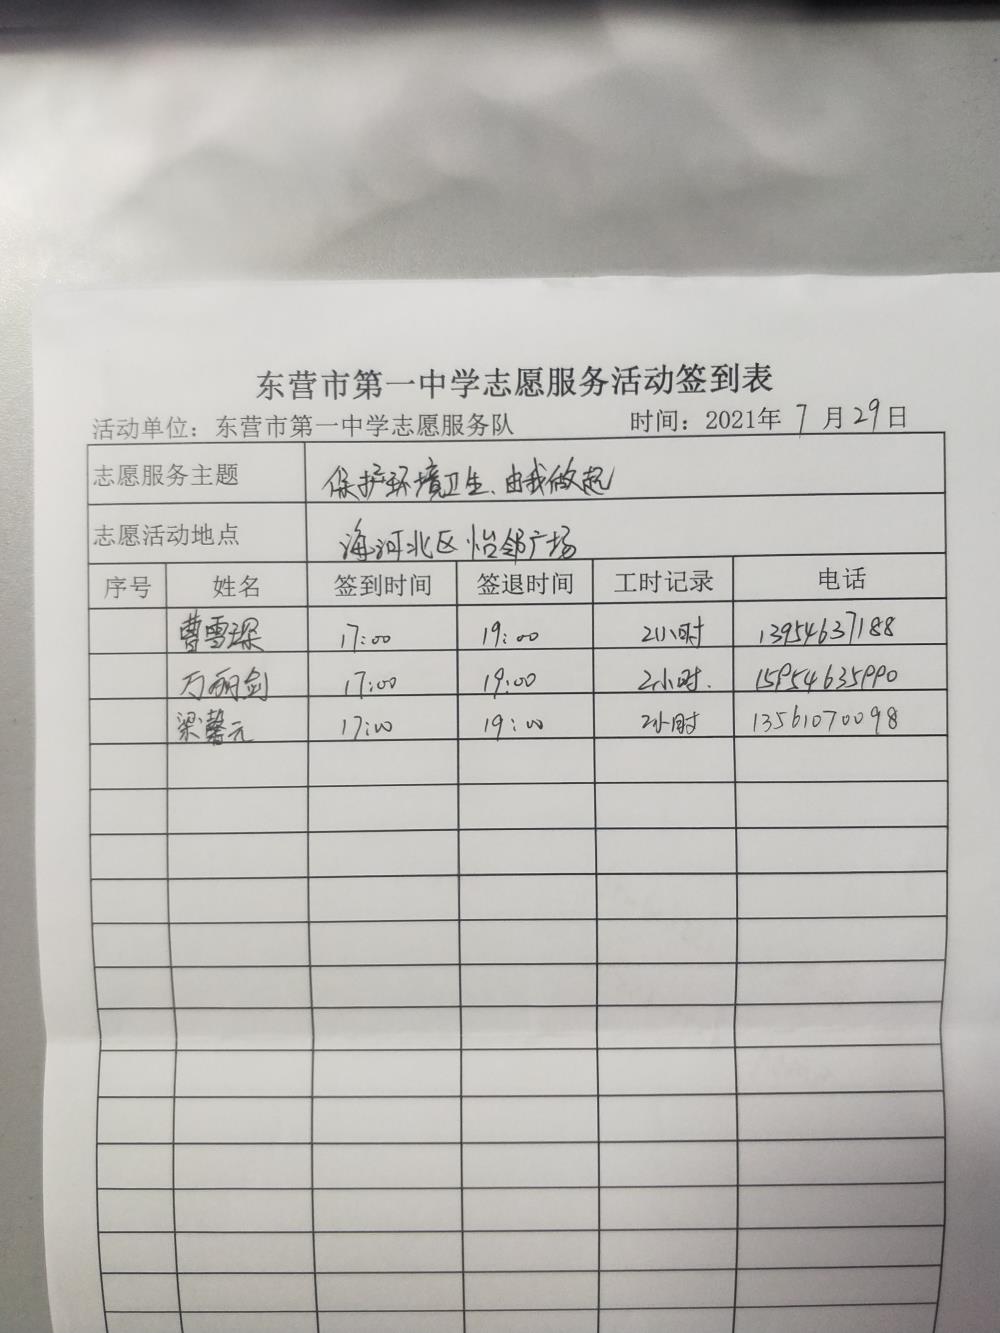 东营市第一中学志愿服务活动签到表
活动单位：东营市第一中学志愿服务队 时间：2021年 7 月 29 日
志愿服务主题 保护环境卫生、由我做起
志愿活动地点 海河北区怡邻广场
序号 姓名 签到时间 签退时间 工时记录 电话
曹雪琛 17:00 19:00 2小时 13954637188
万丽剑 17:00 19:00 2小时. 15954635990
梁馨元 17:00 19:00 2小时 13561070098